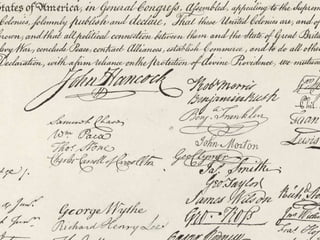 States of America, in General Congress, Assembled, appealing to the Supreme
Colonies, solemnly publish and declare, That these United Colonies are, and of
Crown, and that all political connection between them and the State of Great Brita
levy War, conclude Peace, contract Alliances, establish Commerce, and to do all other
Declaration, with a firm reliance on the protection of divine Providence, we mutua
John Hancock
Robt Morris
Benjamin Rush
Benj. Franklin
Samuel Chase
Wm Paca
Thos Stone
Charles Carroll of Carrollton
John Morton
Geo Clymer
Jas. Smith
Geo. Taylor
James Wilson
Geo. Ross
George Wythe
Richard Henry Lee